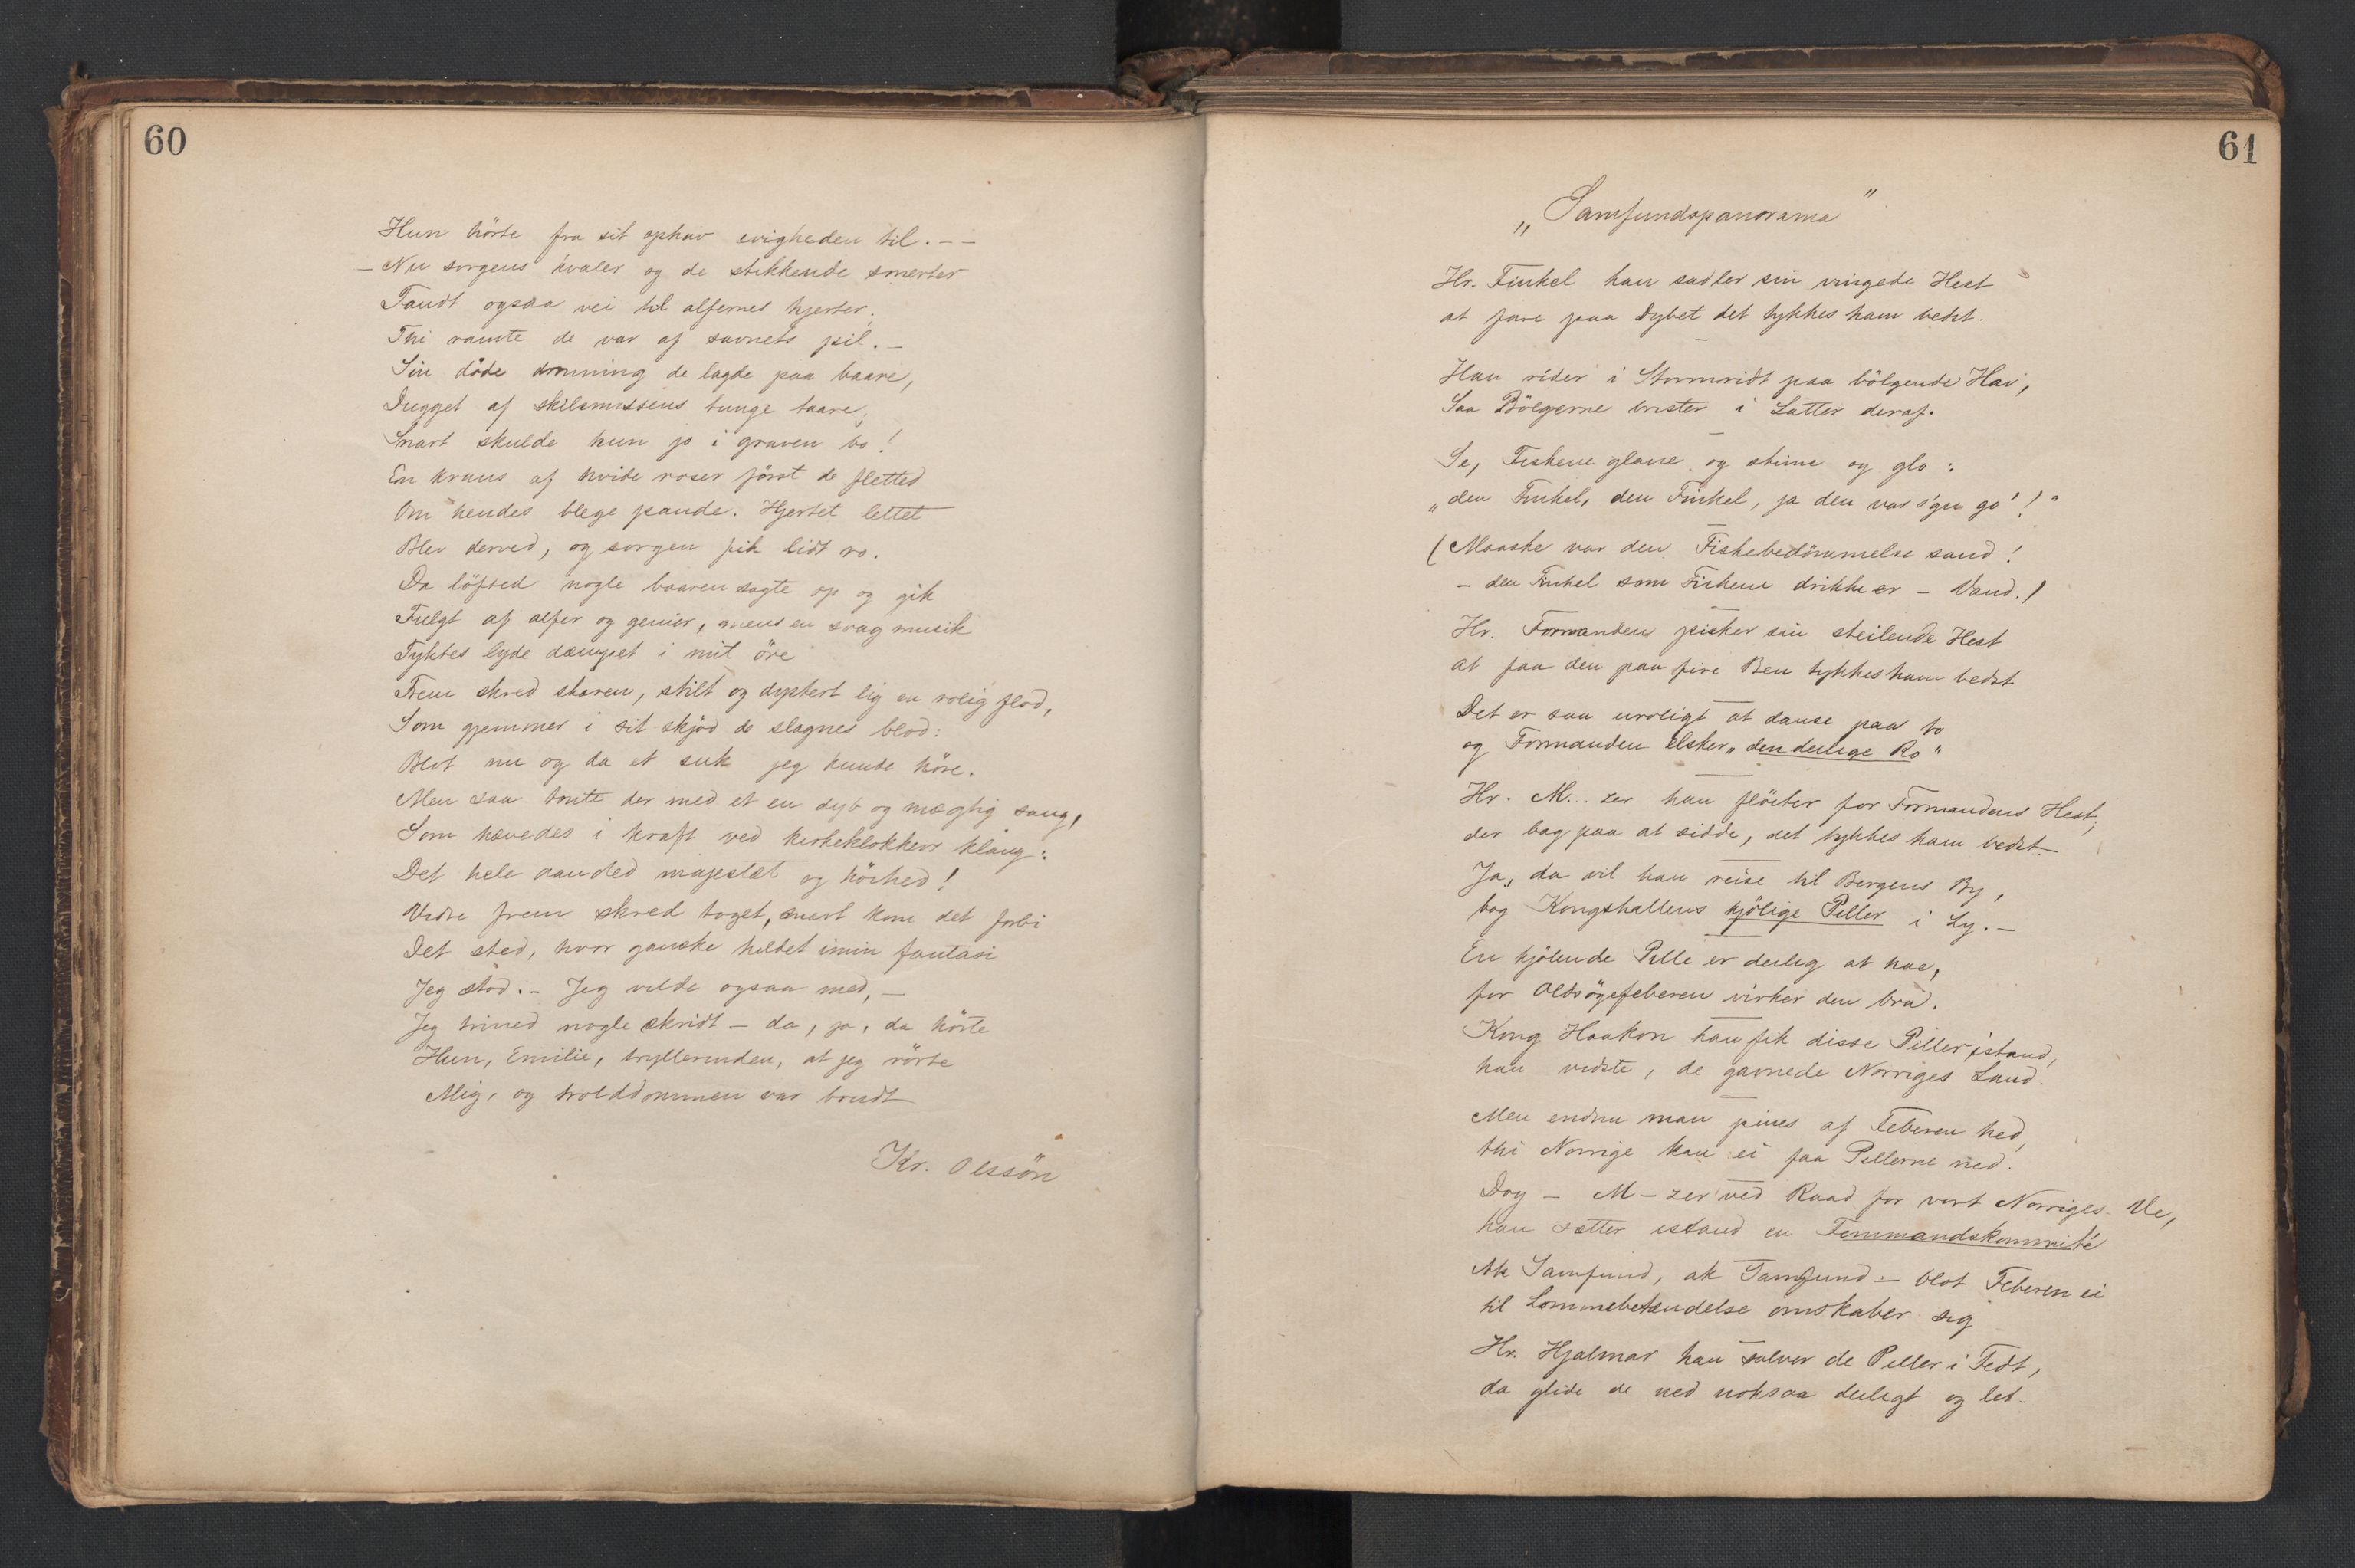 60
Hun hörte fra sit ophav evigheden til. – –
– Nu sorgens kvaler og de stikkende smerter
Fandt ogsaa vei til alfernes hjerter,
Thi ramte de var af savnets pil. –
Sin døde dronning de lagde paa baare,
Dugget af skilsmissens tunge taare,
Snart skulde hun jo i graven bo!
En krans af hvide roser først de fletted
Om hendes blege pande. Hjertet lettet
Blev derved, og sorgen fik lidt ro.
Da løfted nogle baaren sagte op og gik
Fulgt af alfer og genier, mens en svag musik
Tyktes lyde dæmpet i mit öre
Frem skred skaren, stilt og dystert lig en rolig flod,
Som gjemmer i sit skjød de slagnes blod:
Blot nu og da et suk jeg kunde høre.
Men saa tonte der med et en dyb og mægtig sang,
Som hævedes i kraft ved kirkeklokkers klang:
Det hele aanded majestæt og höihed!
Videre frem skred toget, snart kom det forbi
Det sted, hvor ganske hildet i min fantasi
Jeg stod. – Jeg vilde ogsaa med, –
Jeg trined nogle skridt – da, ja, da hörte
Hun, Emilie, tryllerinden, at jeg rörte
Mig, og trolddommen var brudt
Kr. Olssön
61
„Samfundspanorama"
Hr. Finkel han sadler sin vingede Hest
at fare paa Dybet det tykkes ham bedst.
Han rider i Stormridt paa bölgende Hav,
Saa Bölgerne brister i Latter deraf.
Se, Fiskene glane og stime og glo:
„den Finkel, den Finkel, ja den var s'gu go'!"
(Maaske var den Fiskebedömmelse sand!
– den Finkel som Fiskene drikke er – Vand.)
Hr. Formanden pisker sin steilende Hest
at faa den paa fire Ben tykkes ham bedst
Det er saa uroligt at danse paa to
og Formanden elsker „den deilige Ro"
Hr. M... zer han flöiter for Formandens Hest;
der bag paa at sidde, det tykkes ham bedst.
Ja, da vil han reise til Bergens By,
bag Kongshallens kjölige Piller i Ly. –
En kjölende Pille er deilig at hae,
for Oldsögefeberen virker den bra.
Kong Haakon han fik disse Piller istand,
han vidste, de gavnede Norriges Land.
Men endnu man pines af Feberen hed,
thi Norrige kan ei faa Pillerne ned.
Dog – M – zer ved Raad for vort Norriges Ve,
han sætter istand en Femmandskommité
Ak Samfund, ak Samfund – blot Feberen ei
til Lommebetændelse omskaber sig
Hr. Hjalmar han salver de Piller i Fedt,
da glide de ned noksaa deiligt og let.